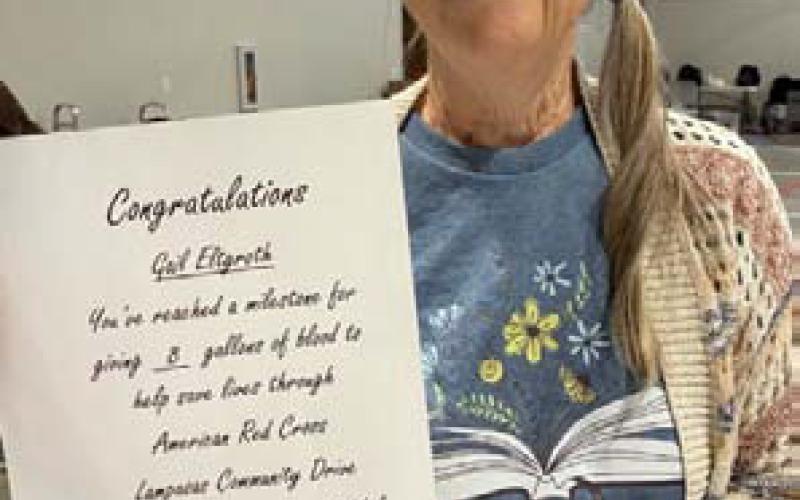 Congratulations
Gail Eltgroth
You've reached a milestone for
giving 8 gallons of blood to
help save lives through
American Red Cross
Lampasas Community Drive